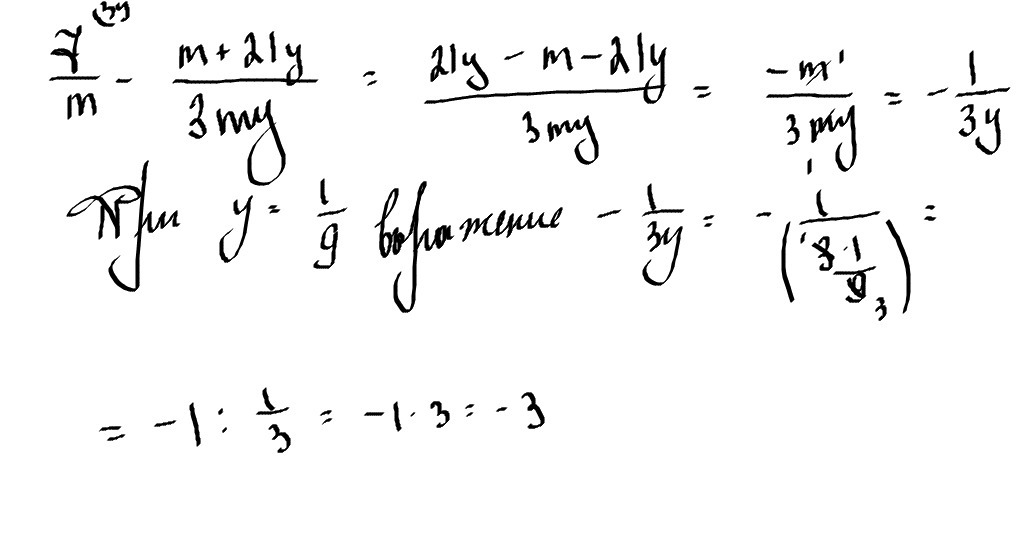 7^(3y)/m - (m + 21y)/(3my) = (21y - m - 21y)/(3my) = (-m^1)/(3my_1) = -1/(3y)
При y = 1/9 выражение -1/(3y) = -1/(^1 3·1/9_3) =
= -1 : 1/3 = -1·3 = -3